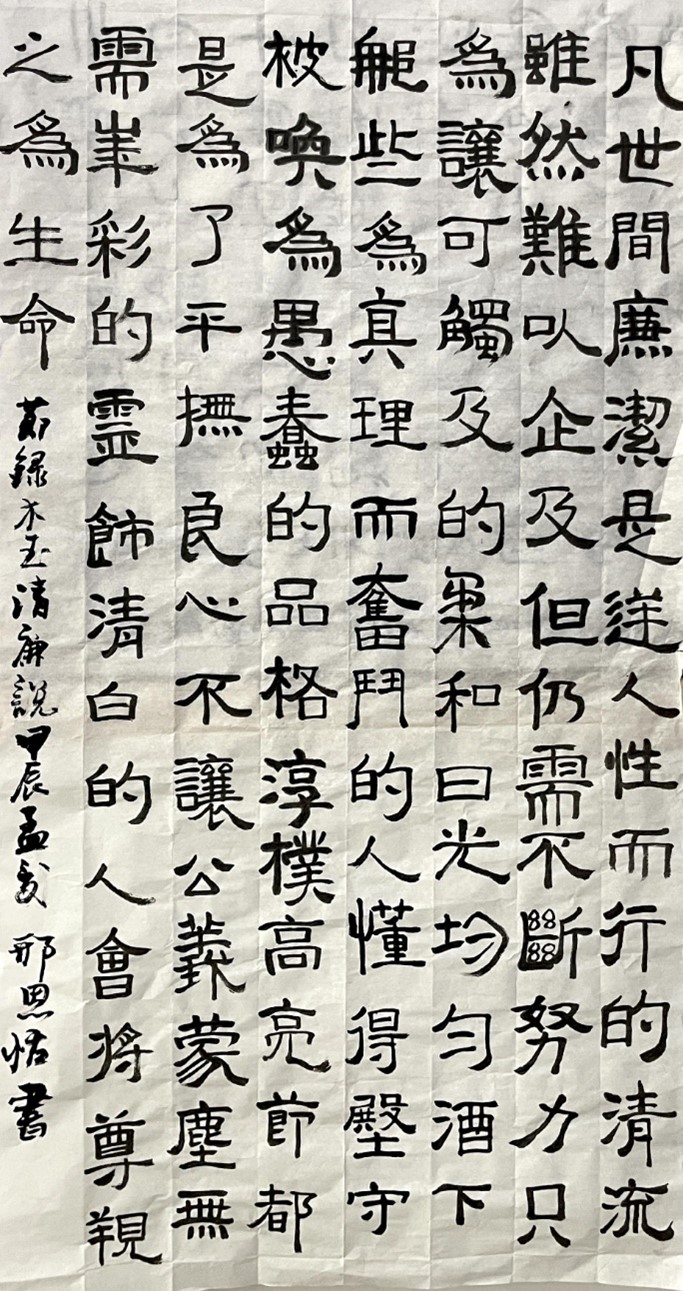 凡世間廉潔是逆人性而行的清流
雖然難以企及但仍需不斷努力只
為讓可觸及的粟和日光均勻洒下
能些為真理而奮鬥的人懂得堅守
被喚為愚蠢的品格淳樸高亮節都
是為了平撫良心不讓公義蒙塵無
需光彩的靈飾清白的人會將尊親
之為生命
節錄木玉清廉說甲辰孟 邢思 書